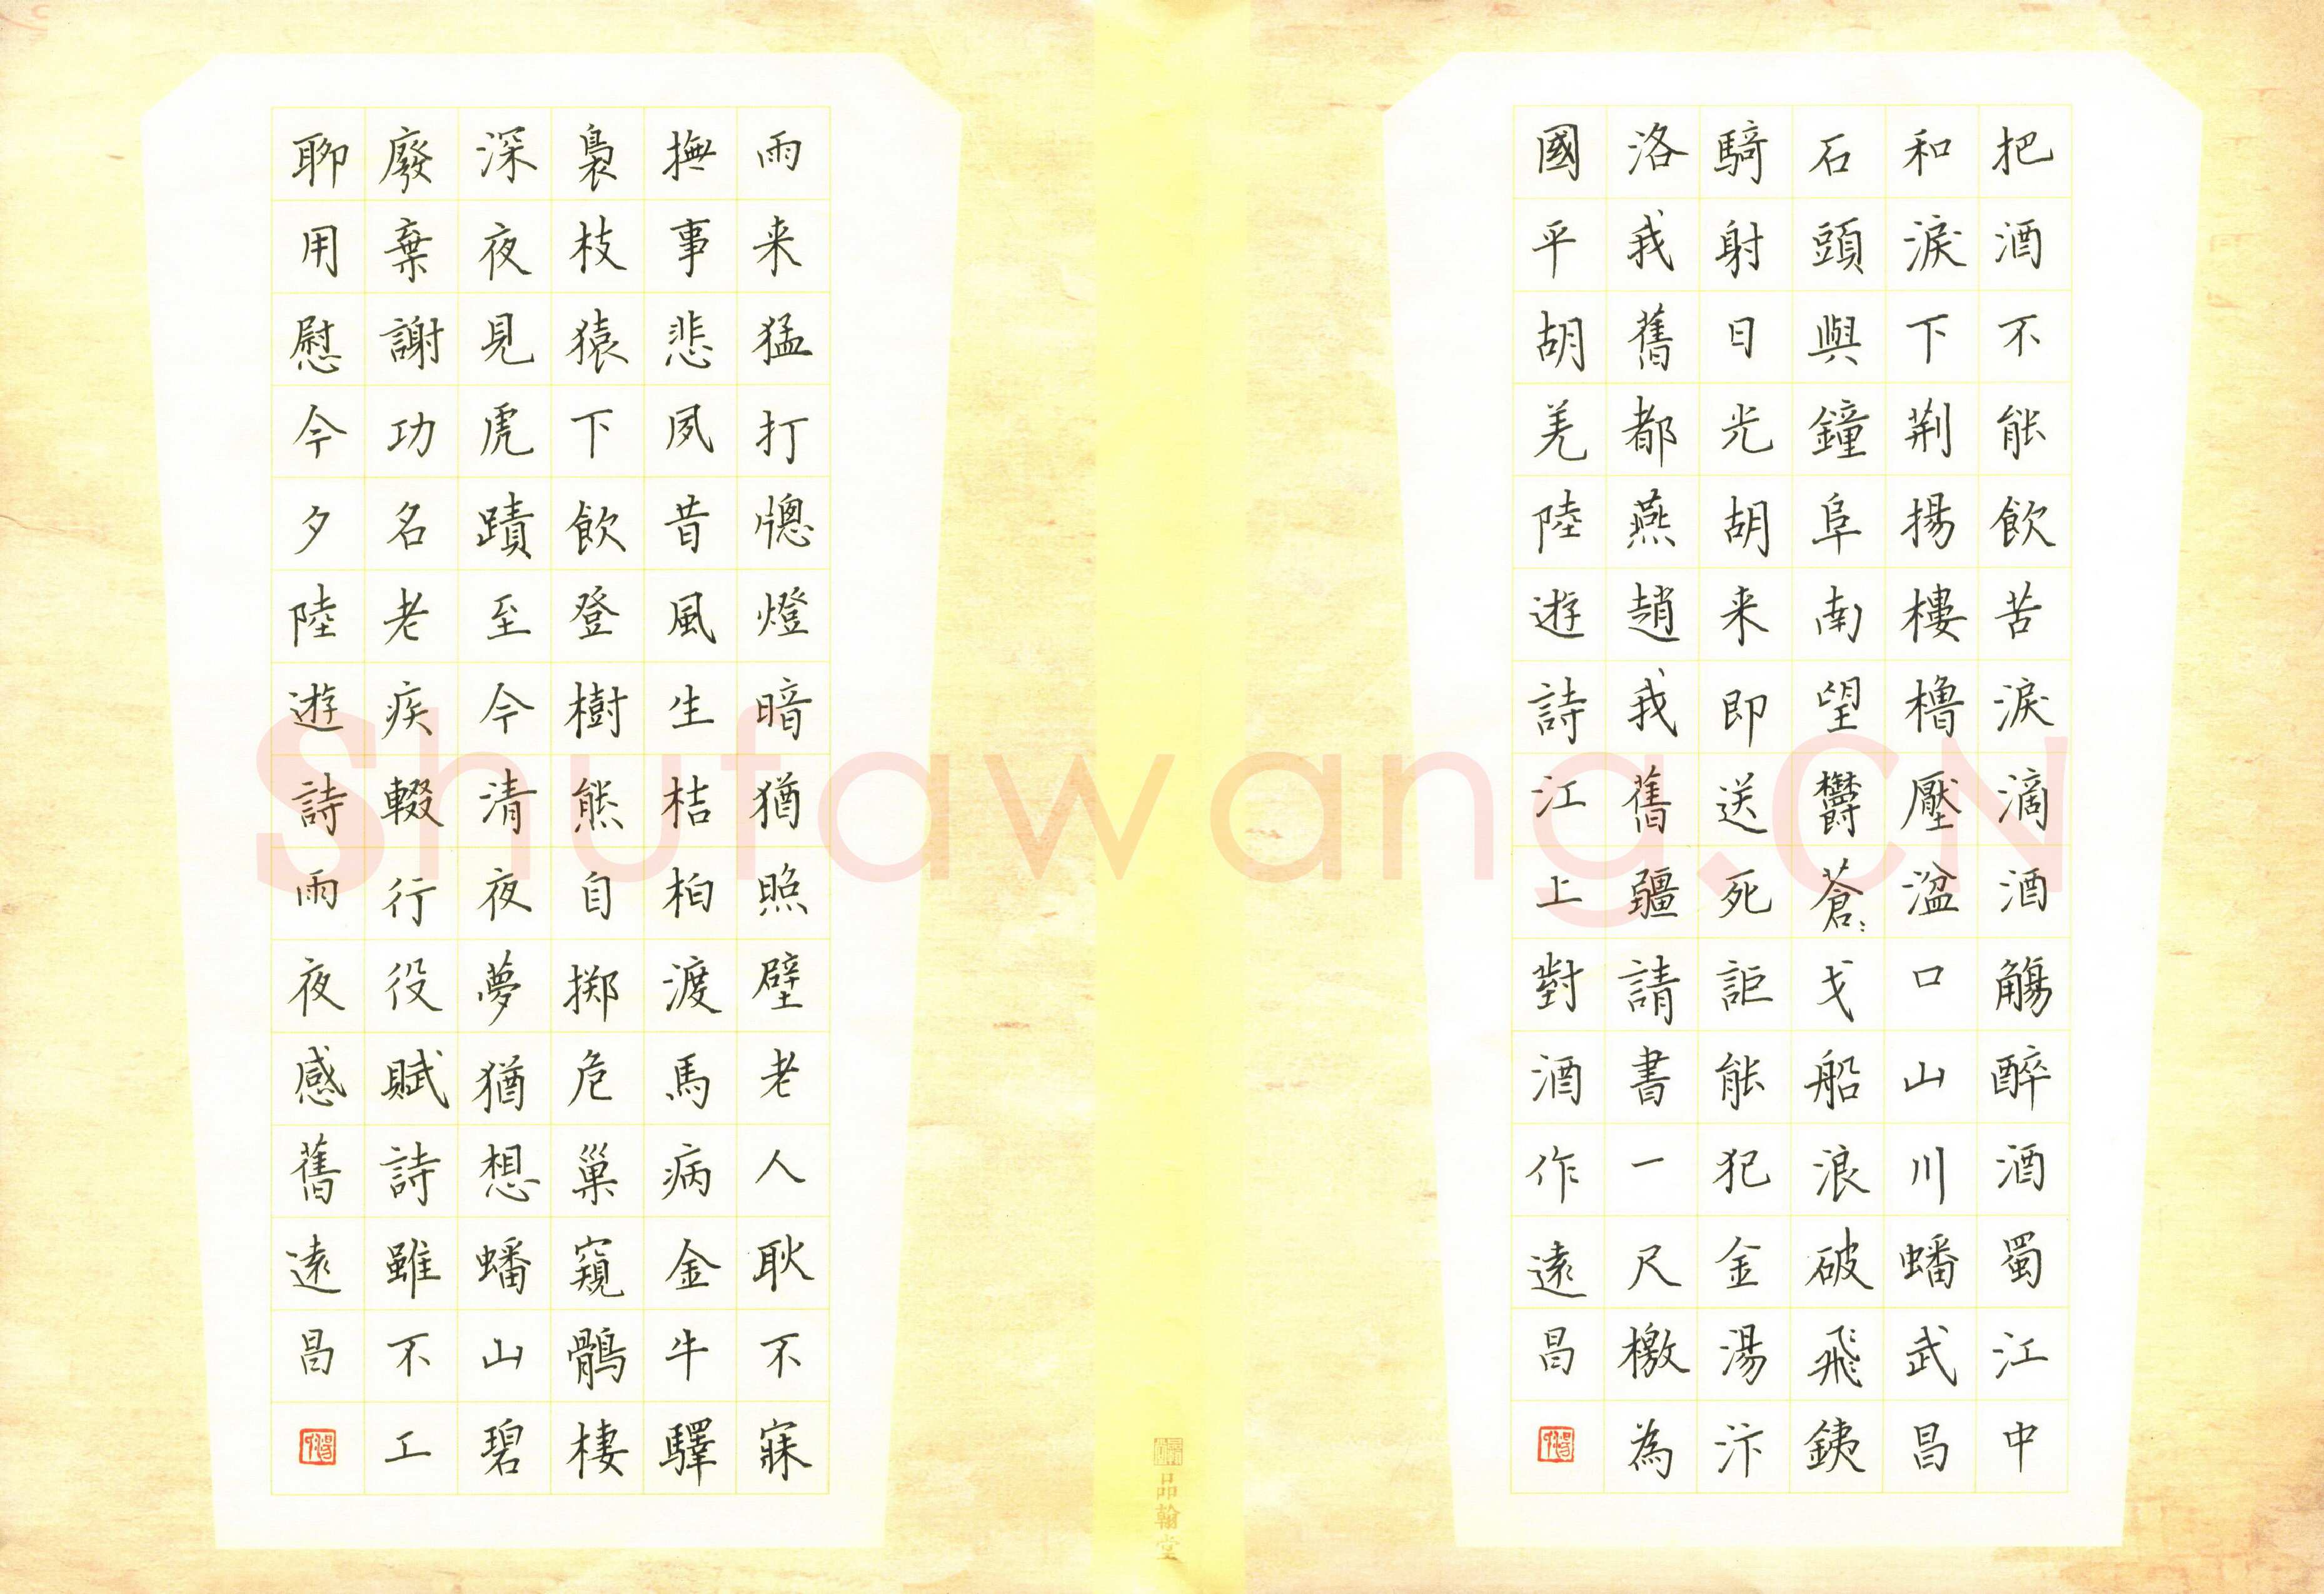 把酒不能飲苦淚滴酒觴醉酒蜀江中
和淚下荆揚樓櫓壓湓口山川蟠武昌
石頭與鐘阜南望鬱蒼〻戈船浪破飛鐵
騎射日光胡来即送死詎能犯金湯汴
洛我舊都燕趙我舊疆請書一尺檄為
國平胡羌陸遊詩江上對酒作遠昌
雨来猛打牕燈暗猶照壁老人耿不寐
撫事悲夙昔風生桔柏渡馬病金牛驛
裊枝猿下飲登樹熊自掷危巢窺鶻棲
深夜見虎蹟至今清夜夢猶想蟠山碧
廢棄謝功名老疾輟行役賦詩雖不工
聊用慰今夕陸遊詩雨夜感舊遠昌
品翰堂
Shufawang.CN